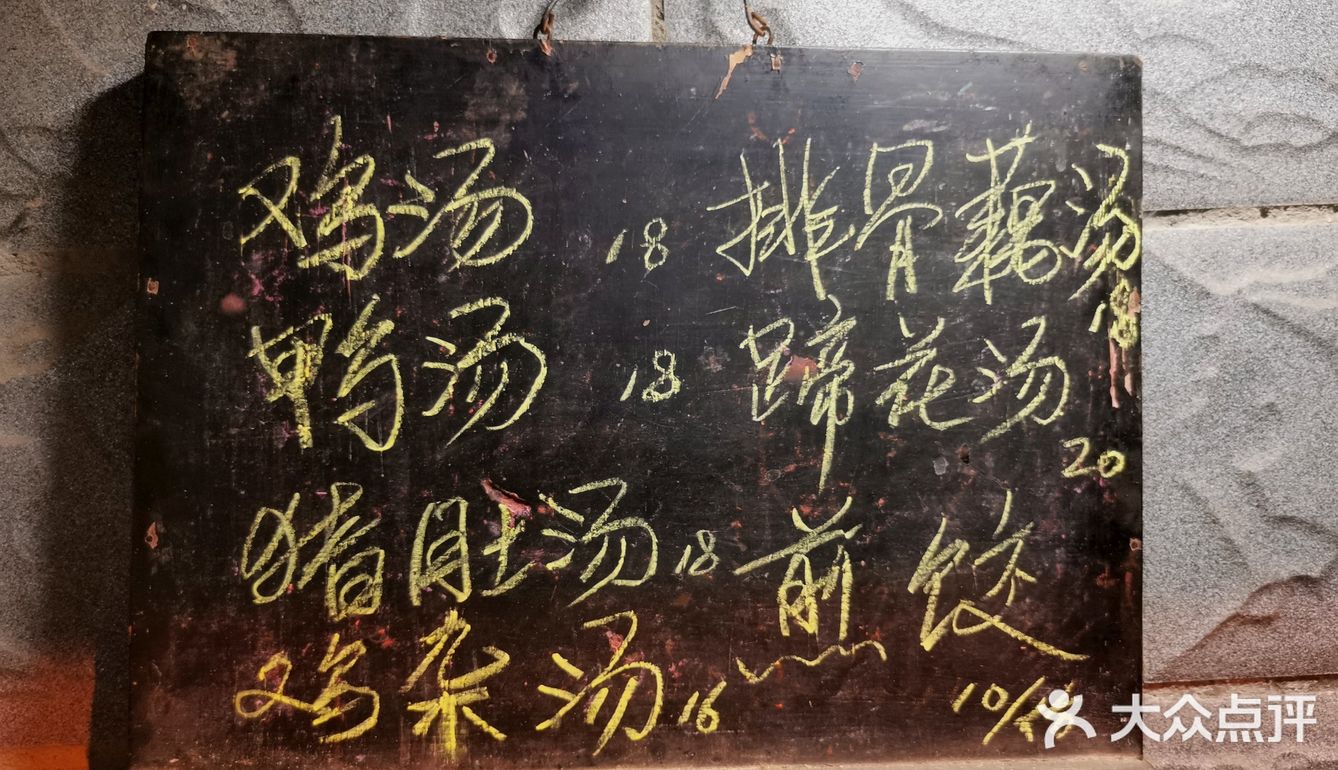 鸡汤 18
鸭汤 18
猪肚汤 18
鸡杂汤 16
排骨藕汤
18
蹄花汤
20
煎饺
10/
大众点评